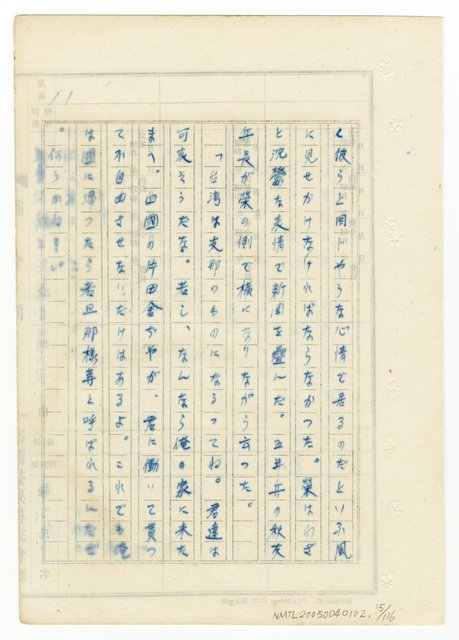 11
く彼らと同じやうな心情で居るのだといふ風
に見せかけなければならなかつた。榮はわざ
と沈鬱な表情で新聞を疊んだ。五年兵の秋友
兵長が榮の側で横になりながら云つた。
「台湾は支那のものになるつてね。君達は
可哀さうだな。若し、なんなら俺の家に来た
まへ。四國の片田舎ぢやが、君に働いて貰つ
て不自由させないだけはあるよ。これでも俺
は國に帰つたら若旦那様等と呼ばれるんだぜ
。何うかね」
NMTL20050040102, 15/116